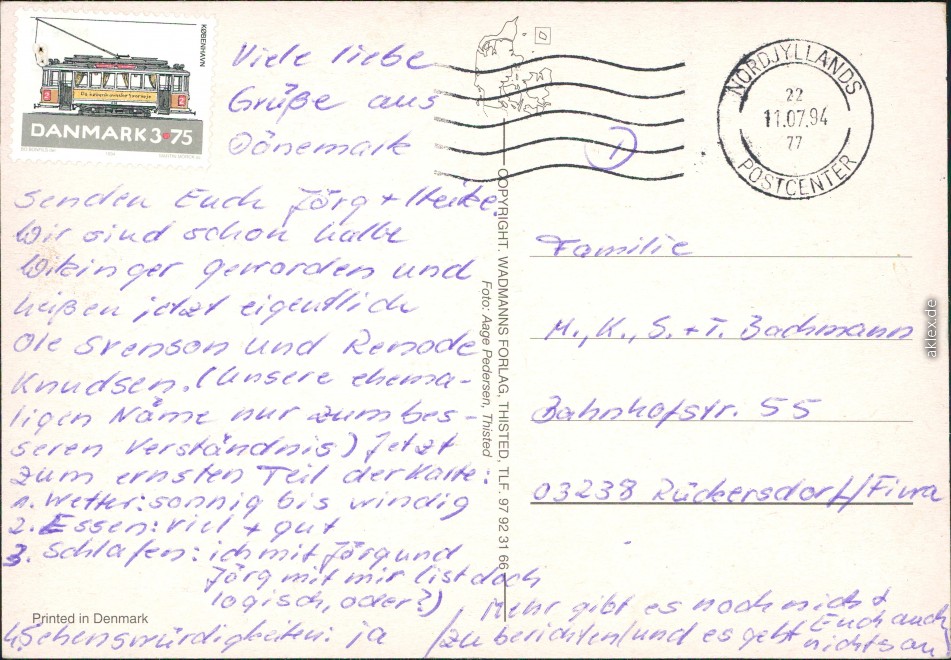 KØBENHAVN
DANMARK 3.75
NORDJYLLANDS
22
11.07.94
77
POSTCENTER
Viele liebe
Grüße aus
Dänemark
senden Euch Jörg + Heike.
Wir sind schon halbe
Wikinger geworden und
heißen jetzt eigentlich
Ole Svenson und Renode
Knudsen. (Unsere ehema-
ligen Name nur zum bes-
seren Verständnis) Jetzt
zum ernsten Teil der Karte:
1. Wetter: sonnig bis windig
2. Essen: viel + gut
3. Schlafen: ich mit Jörg und
Jörg mit mir (ist doch
logisch, oder?)
4. Sehenswürdigkeiten: ja
Mehr gibt es noch nicht
zu berichten (und es geht Euch auch
nichts an)
Printed in Denmark
COPYRIGHT. WADMANNS FORLAG, THISTED, TLF. 97 92 31 66
Foto: Aage Pedersen, Thisted
1
Familie
M., K., S. + T. Bachmann
Bahnhofstr. 55
03238 Rückersdorf/Fiwa
akpool.de